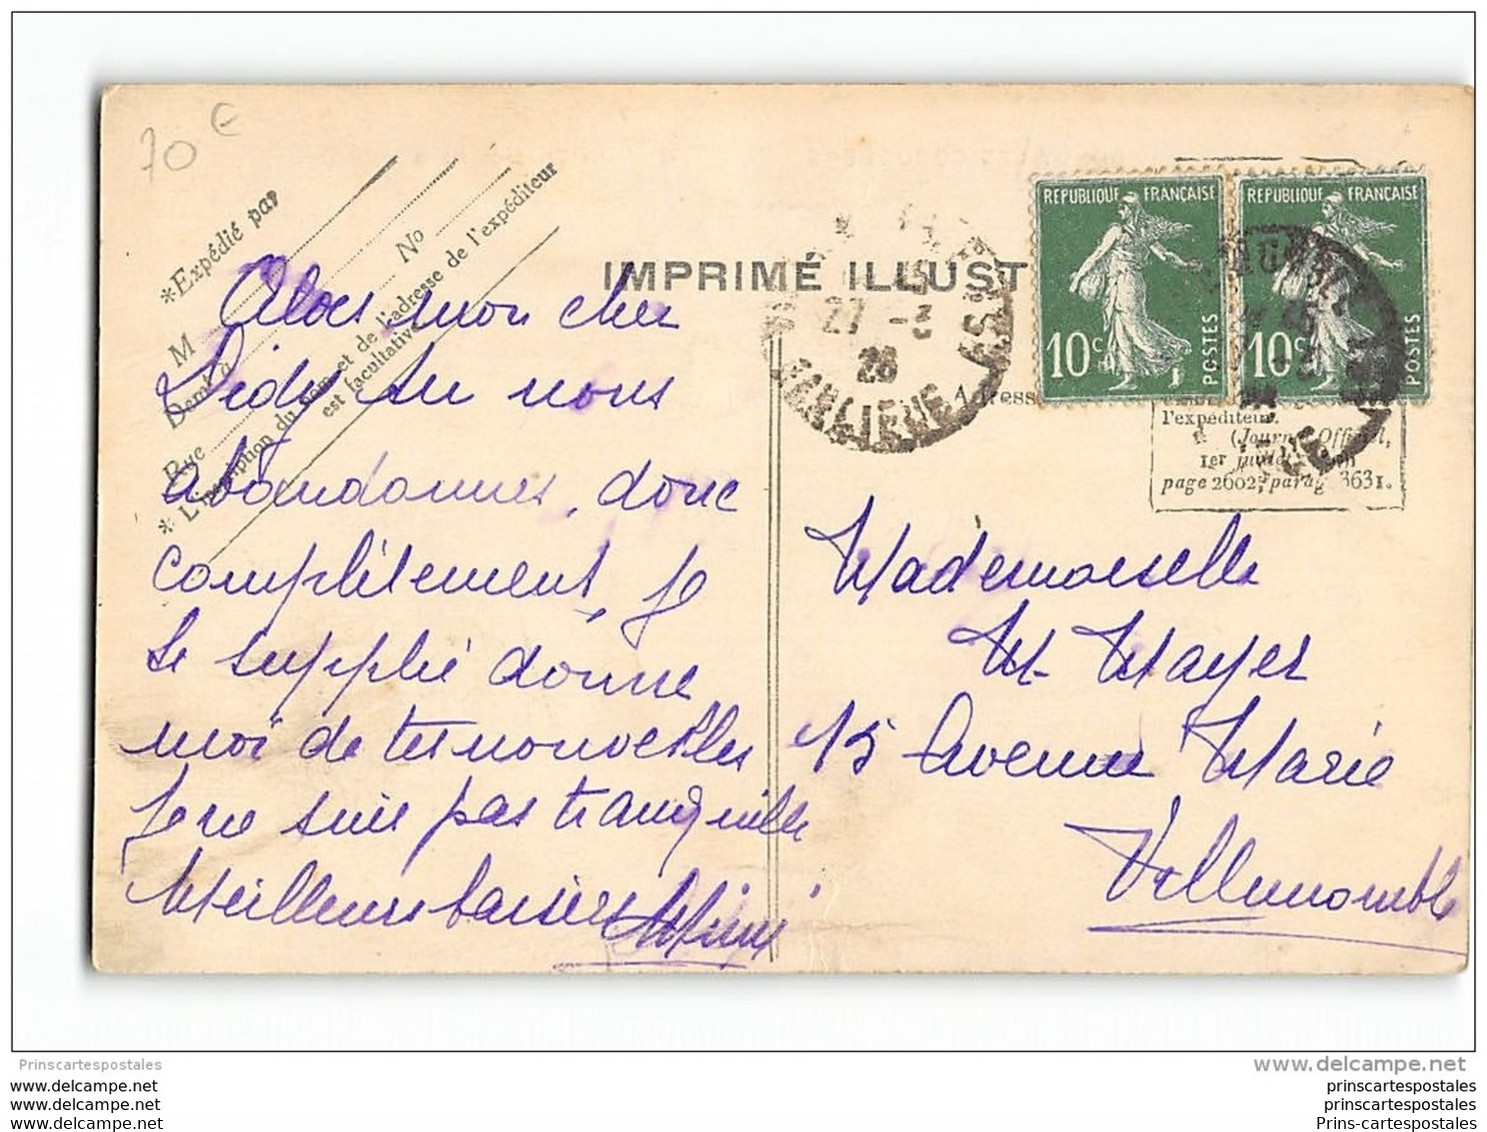 70 €
*Expédié par
M
N°
Demt à
Rue
* L'inscription du nom et de l'adresse de l'expéditeur
est facultative
IMPRIMÉ ILLUST
27 -3
26
REPUBLIQUE FRANÇAISE
10c
POSTES
REPUBLIQUE FRANÇAISE
10c
POSTES
Adresse
l'expéditeur.
(Journ Officiel,
1er
page 2602, parag 3631.
Alors mon cher
Didy tu nous
abandonnes, donc
complètement, je
te supplie donne
moi de tes nouvelles
Je ne suis pas tranquille
Meilleurs baisers Mimi
Mademoiselle
M. Mayer
15 Avenue Marie
Villemomble
Prinscartespostales
www.delcampe.net
www.delcampe.net
www.delcampe.net
www.delcampe.net
prinscartespostales
prinscartespostales
Prins-cartespostales